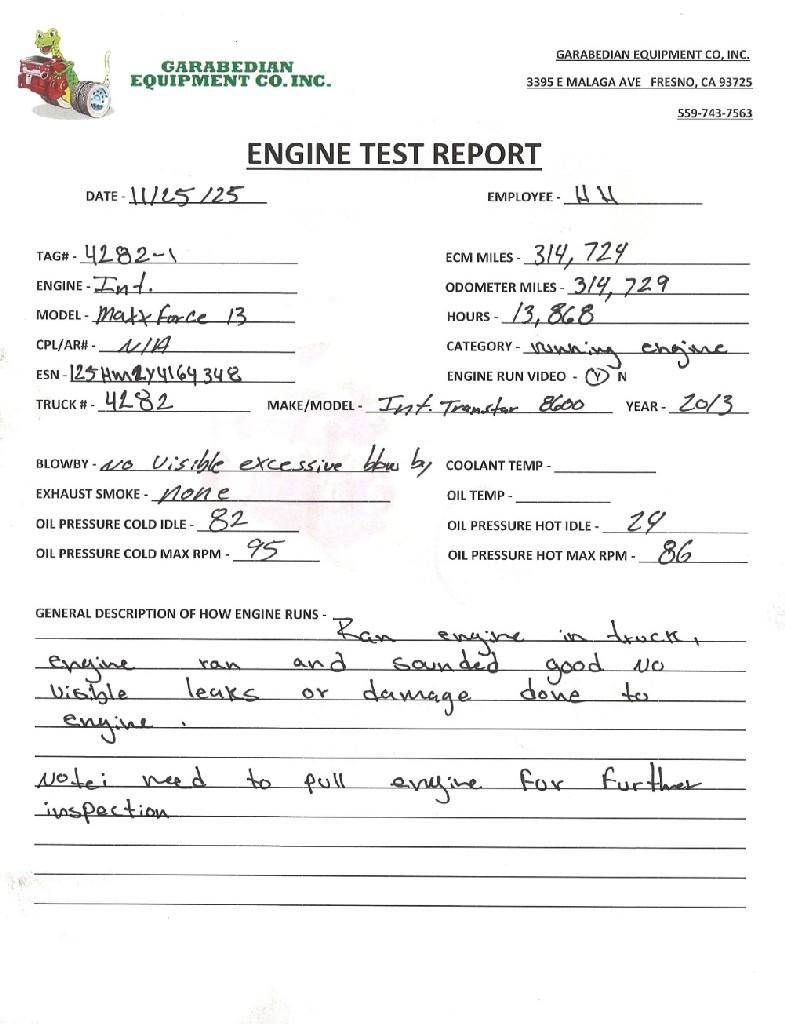 GARABEDIAN
EQUIPMENT CO. INC.
GARABEDIAN EQUIPMENT CO, INC.
3395 E MALAGA AVE FRESNO, CA 93725
559-743-7563
ENGINE TEST REPORT
DATE - 11/25/25 EMPLOYEE - H H
TAG# - 4282-1 ECM MILES - 314,729
ENGINE - Int. ODOMETER MILES - 314,729
MODEL - Maxx force 13 HOURS - 13,868
CPL/AR# - N/A CATEGORY - running engine
ESN - 125HM2Y4164348 ENGINE RUN VIDEO - Y N
TRUCK # - 4282 MAKE/MODEL - Int. Transtar 8600 YEAR - 2013
BLOWBY - NO Visible excessive blow by COOLANT TEMP -
EXHAUST SMOKE - none OIL TEMP -
OIL PRESSURE COLD IDLE - 82 OIL PRESSURE HOT IDLE - 29
OIL PRESSURE COLD MAX RPM - 95 OIL PRESSURE HOT MAX RPM - 86
GENERAL DESCRIPTION OF HOW ENGINE RUNS -
Ran engine in truck,
engine ran and sounded good NO
Visible leaks or damage done to
engine.
Note: need to pull engine for further
inspection